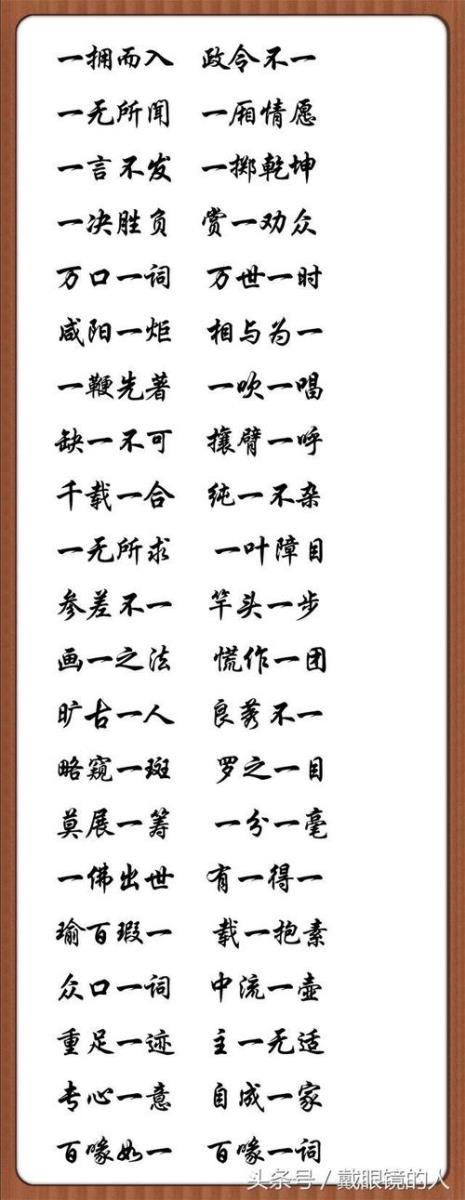 一拥而入 政令不一
一无所闻 一厢情愿
一言不发 一掷乾坤
一决胜负 赏一劝众
万口一词 万世一时
咸阳一炬 相与为一
一鞭先著 一吹一唱
缺一不可 攘臂一呼
千载一合 纯一不杂
一无所求 一叶障目
参差不一 竿头一步
画一之法 慌作一团
旷古一人 良莠不一
略窥一斑 罗之一目
莫展一筹 一分一毫
一佛出世 有一得一
瑜百瑕一 载一抱素
众口一词 中流一壶
重足一迹 主一无适
专心一意 自成一家
百喙如一 百喙一词
头条号／戴眼镜的人